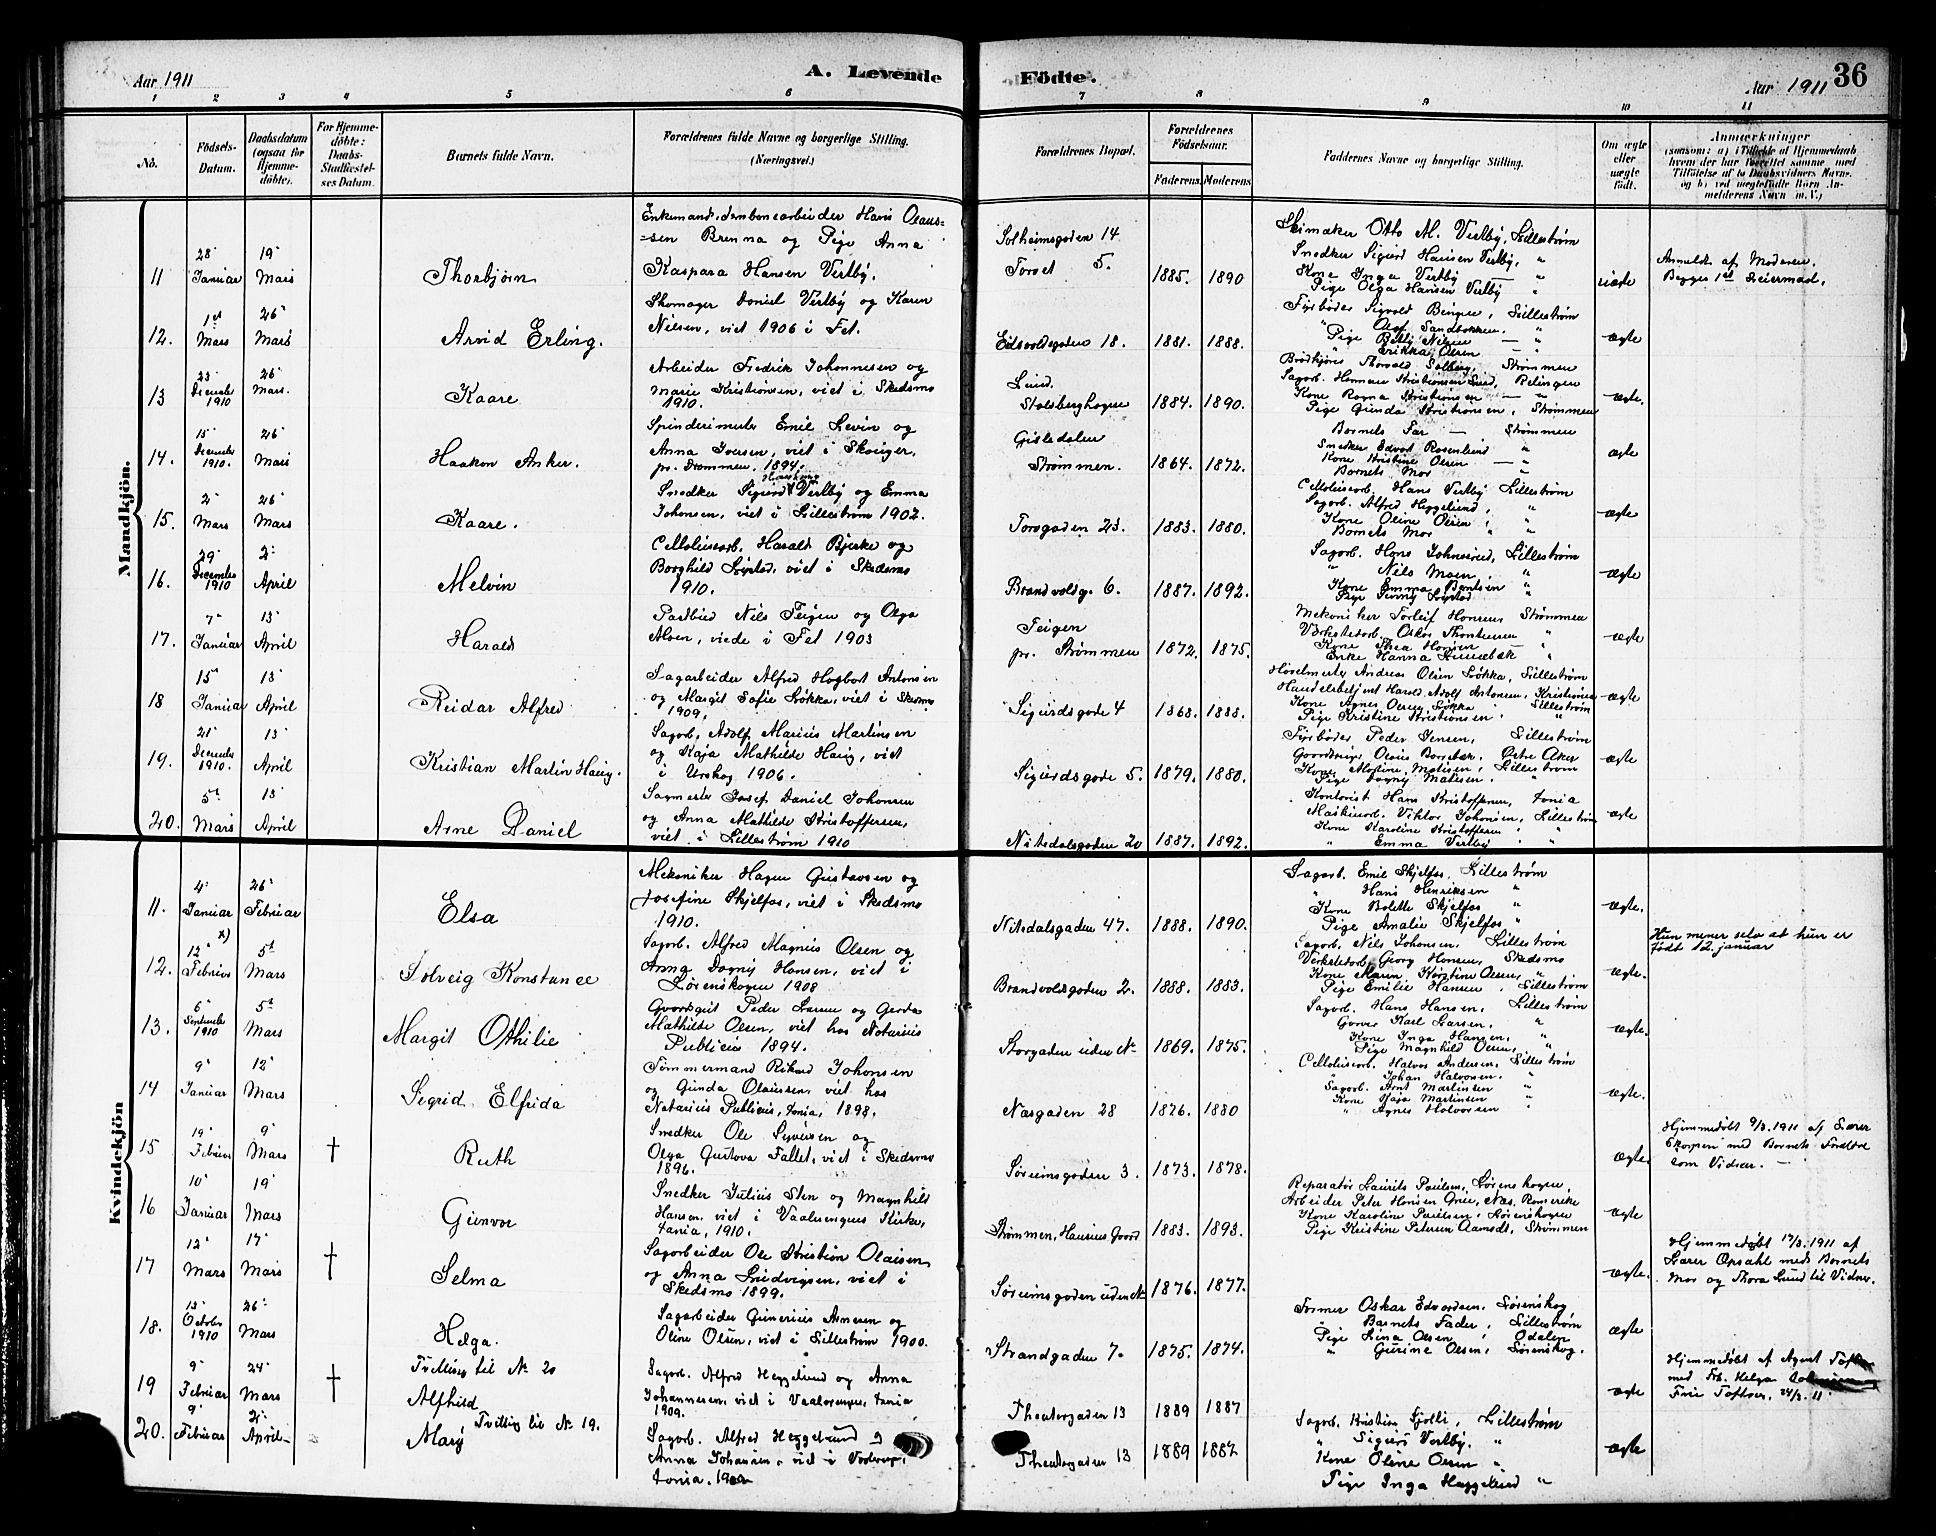 Aar 1911
A. Levende
Födte.
Aar 1911
36
1 2 3 4 5 6 7 8 9 10 11
No.
Födsels-Datum.
Daabsdatum (ogsaa for Hjemmedöbte).
For Hjemmedöbte: Daabs-Stadfæstelses Datum.
Barnets fulde Navn.
Forældrenes fulde Navne og borgerlige Stilling. (Næringsvei.)
Forældrenes Bopæl.
Forældrenes Födselsaar.
Faderens. Moderens.
Faddernes Navne og borgerlige Stilling.
Om ægte eller uægte födt.
Anmærkninger
Mandkjön.
11 28 Januar 19 Mars Thorbjørn
Hans Olaus-
sen Brenna og Pige Anna
Kaspara Hansen Vestby.
Solheimsgaden 14
Torvet 5. 1885. 1890
Skimaker Otto M. Vestby, Lillestrøm
Snedker Sigurd Hansen Vestby, "
Kone Inga Vestby — "
Pige Olga Hansen Vestby "
uægte
Anmeldt af Moderen.
Begges 1st Leiermaal.
12. 1st Mars 26 Mars Arvid Erling.
Skomager Daniel Vestby og Karen
Nielsen, viet 1906 i Fet.
Eidsvoldsgaden 18. 1881. 1888.
Fyrbøder Sigvald Bingen, Lillestrøm
" Olaf Sandbakken "
Pige Betty Nilsen — "
" Erikka Olsen — "
ægte
13 23 December 1910 26 Mars. Kaare
Arbeider Fredrik Johannesen og
Marie Kristiansen, viet i Skedsmo
1910.
Lund.
Stalsberghagen 1884. 1890.
Brødkjører Thorvald Solberg, Strømmen
Kone Ragna Kristiansen — "
Pige Gunda Kristiansen, Strømmen
ægte.
14. 15 December 1910. 26 Mars Haakon Anker.
Spinderimester Emil Levin og
Anna Iversen, viet i Skouger,
pr. Drammen, 1894.
Strømmen. 1864. 1872.
Barnets Far — Strømmen
Snedker Edvard Rosenlund "
Kone Kristine Olsen — "
Barnets Mor "
ægte
15. 2 Mars 26 Mars Kaare.
Snedker Sigurd Hansen Vestby og Emma
Johansen, viet i Lillestrøm 1902.
Torvgaden 23. 1883. 1880.
Cellulosearb. Hans Vestby Lillestrøm
Sagarb. Alfred Heggelund, "
Kone Oline Olsen "
Barnets Mor "
ægte
16. 29 December 1910 2 April Melvin
Cellulosearb. Harald Bjerke og
Borghild Løystad, viet i Skedsmo
1910.
Brandvoldg. 6. 1887. 1892.
Sagarb. Hans Johnsrud, Lillestrøm
" Nils Moen, "
Kone Emma Berntsen "
Pige Jenny Løystad "
ægte
17. 7 Januar 13 April Harald
Nils Teigen og Olga
Moen, viede i Fet 1903
Teigen
pr. Strømmen 1872. 1875.
Mekaniker Torleif Hansen, Strømmen
Verkstedarb. Oskar "
Kone Thea Hansen "
Enke Hanna "
ægte
18 15 Januar 13 April Reidar Alfred
Sagarbeider Alfred Hagbart Antonsen
og Margit Sofie Løkka, viet i Skedsmo
1909.
Sigurdsgade 4 1868. 1888.
Høvelmester Andreas Olsen Løkka, Lillestrøm
Handelsbetjent Harald Adolf Antonsen, Kristiania
Kone Agnes Olsen Løkka, Lillestrøm
Pige Kristine Kristiansen, "
ægte
19. 21 December 1910. 13 April Kristian Martin Haug.
Sagarb. Adolf Marius Martinsen
og Kaja Mathilde Haug, viet
i Urskog 1906.
Sigurdsgade 5. 1879. 1880.
Fyrbøder Peder Jensen, Lillestrøm
Østre Aker
Kone Mathisen, Lillestrøm
Pige Dagny Matisen, "
ægte
20. 5 Mars 13 April Arne Daniel
Sagmester Josef Daniel Johansen
og Anna Mathilde Kristoffersen,
viet i Lillestrøm 1910
Nitedalsgaden 20 1887. 1892.
Kontorist Hans Kristoffersen, Xania
Maskinarb. Viktor Johansen, Lillestrøm
Kone Karoline Kristoffersen "
" Emma Vestby "
ægte
Kvindekjön
11. 4 Januar 26 Februar Elsa
Mekaniker Hagen Gustavsen og
Josefine Skjelfos, viet i Skedsmo
1910.
Nitedalsgaden 47. 1888. 1890.
Sagarb. Emil Skjelfos, Lillestrøm
" Hans Henriksen "
Kone Bolette Skjelfos "
Pige Amalie Skjelfos "
ægte.
12. 12 x) Februar 5t Mars Solveig Konstance
Sagarb. Alfred Magnus Olsen og
Anna Dagny Hansen, viet i
Lørenskogen 1908
Brandvoldgaden 2. 1888. 1883.
Sagarb. Nils Johansen, Lillestrøm
Verkstedarb. Georg Hansen, Skedsmo
Kone Maren Kirstine Olsen, "
Pige Emilie Hansen, Lillestrøm
ægte.
Hun mener selv at hun er
født 12. januar
13. 6 September 1910 5t Mars Margit Othilie
Gaardsgut Peder Larsen og Gerda
Mathilde Olsen, viet hos Notarius
Publicus 1894.
Storgaden uden Nr 1869. 1875.
Sagarb. Hans Hansen, Lillestrøm
Garver Karl Larsen, "
Kone Inga Hansen, "
Pige Magnhild Olsen, "
ægte.
14 9 Januar 12 Mars Sigrid Elfrida
Tømmermand Rikard Johansen
og Gunda Olaussen, viet hos
Notarius Publicus, Xania, 1898.
Næsgaden 28 1876. 1880
Cellulosearb. Halvor Andersen, Lillestrøm
" Johan Halvorsen, "
Sagarb. Arnt Martinsen "
Kone Kaja Martinsen "
" Agnes Halvorsen "
ægte.
15 19 Februar 9 Mars † Ruth
Snedker Ole Syversen og
Olga Gustava Fallet, viet i Skedsmo
1896.
Sørumsgaden 3. 1873. 1878.
ægte.
Hjemmedøbt 9/3. 1911 af Lærer
Skorpen med Barnets Forældre
som Vidner. —
16 10 Januar 19 Mars Gunvor
Snedker Julius Sten og Magnhild
Hansen, viet i Vaalerengens Kirke,
Xania, 1910.
Strømmen, Hansens Gaard 1883. 1893.
Reparatør Laurits Paulsen, Lørenskogen,
Arbeider Peter Hansen Grue, Næs, Romerike
Kone Karoline Paulsen, Lørenskogen
Pige Kristine Petersen Aamodt, Strømmen
ægte
17 12 Mars 17 Mars † Selma
Sagarbeider Ole Kristian Olaisen
og Anna Ludvigsen, viet i
Skedsmo 1899.
Sørumsgaden uden Nr 1876. 1877.
ægte.
Hjemmedøbt 17/3. 1911 af
Lærer Opsahl med Barnets
Mor og Thora Lund til Vidner.
18. 13 October 1910 26 Mars Helga.
Sagarbeider Gunerius Arnesen og
Oline Olsen, viet i Lillestrøm 1900.
Strandgaden 7. 1875. 1874.
Former Oskar Edvardsen, Lørenskog,
Barnets Fader, Lillestrøm
Pige Lina Olsen, Odalen
" Gurine Olsen, Lørenskog.
ægte
19 9 Februar 24 Mars † Tvilling til No 20
Alfhild
Sagarb. Alfred Heggelund og Anna
Johannesen, viet i Vaalerengen, Xania,
1909.
Theatergaden 13 1889 1887
ægte
Hjemmedøbt af Agent Toftner
med Frk. Helga
Fru Toftner, 24/3. 11.
20. 9 Februar 2 April Tvilling til No 19.
Mary
Sagarb. Alfred Heggelund og
Anna Johansen, viet i
Xania. 1909
Theatergaden 13 1889 1887
Sagarb. Kristian Fjelli, Lillestrøm
" Sigurd Vestby. "
Kone Oline Olsen "
Pige Inga Heggelund "
ægte